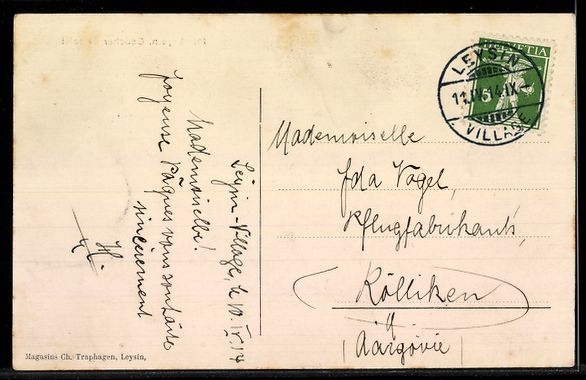 Leysin-Village, le 10.IV.14
Mademoiselle!
Joyeuse Pâques vous souhaite
sincèrement
H.
HELVETIA
5
LEYSIN
11.IV.14.IX
VILLAGE
Mademoiselle
Ida Vogel,
Pflugfabrikants,
Kölliken
(Aargovie)
Magasins Ch. Traphagen, Leysin,